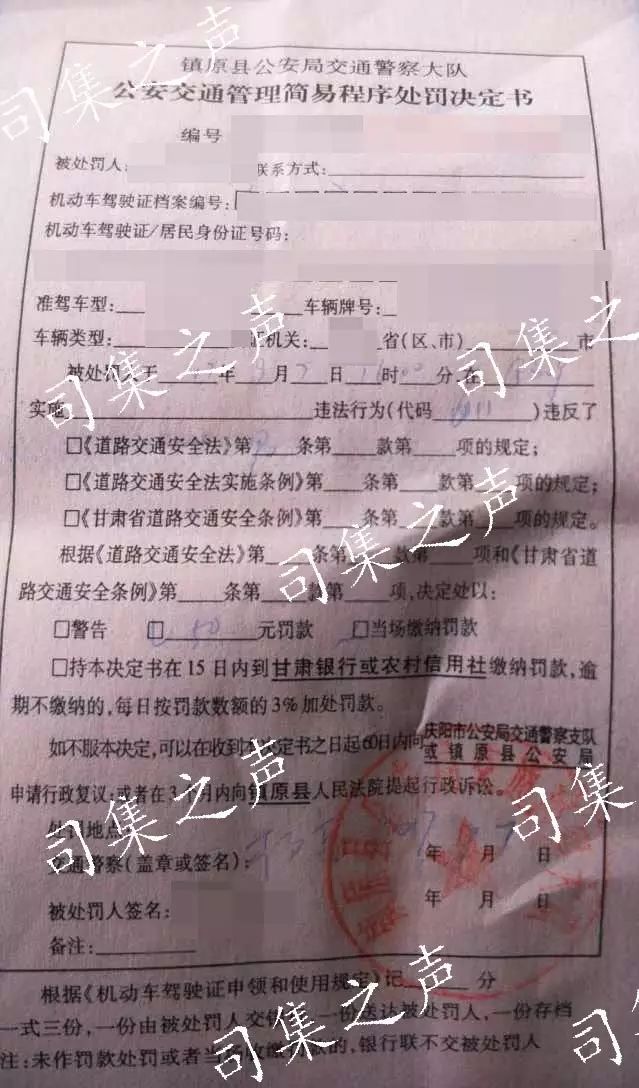 镇原县公安局交通警察大队
公安交通管理简易程序处罚决定书
编号
被处罚人: 联系方式:
机动车驾驶证档案编号:
机动车驾驶证/居民身份证号码:
准驾车型: 车辆牌号:
车辆类型: 证机关: 省(区、市) 市
被处罚人于 年 月 日 时 分在
实施 违法行为(代码 )违反了
□《道路交通安全法》第 条第 款第 项的规定;
□《道路交通安全法实施条例》第 条第 款第 项的规定;
□《甘肃省道路交通安全条例》第 条第 款第 项的规定。
根据《道路交通安全法》第 条第 款第 项和《甘肃省道
路交通安全条例》第 条第 款第 项,决定处以:
□警告 □ 50 元罚款 □当场缴纳罚款
□持本决定书在15日内到甘肃银行或农村信用社缴纳罚款,逾
期不缴纳的,每日按罚款数额的3%加处罚款。
如不服本决定,可以在收到本决定书之日起60日内向庆阳市公安局交通警察支队
或镇原县公安局
申请行政复议;或者在3个月内向镇原县人民法院提起行政诉讼。
处罚地点
交通警察(盖章或签名): 年 月 日
被处罚人签名: 年 月 日
备注:
根据《机动车驾驶证申领和使用规定》记 分
一式三份,一份由被处罚人交银 一份送达被处罚人,一份存档
注:未作罚款处罚或者当场收缴罚款的,银行联不交被处罚人
司集之声
司集之声
司集之声
司集之声
司集之声
司集之声
司集之声
司集之声